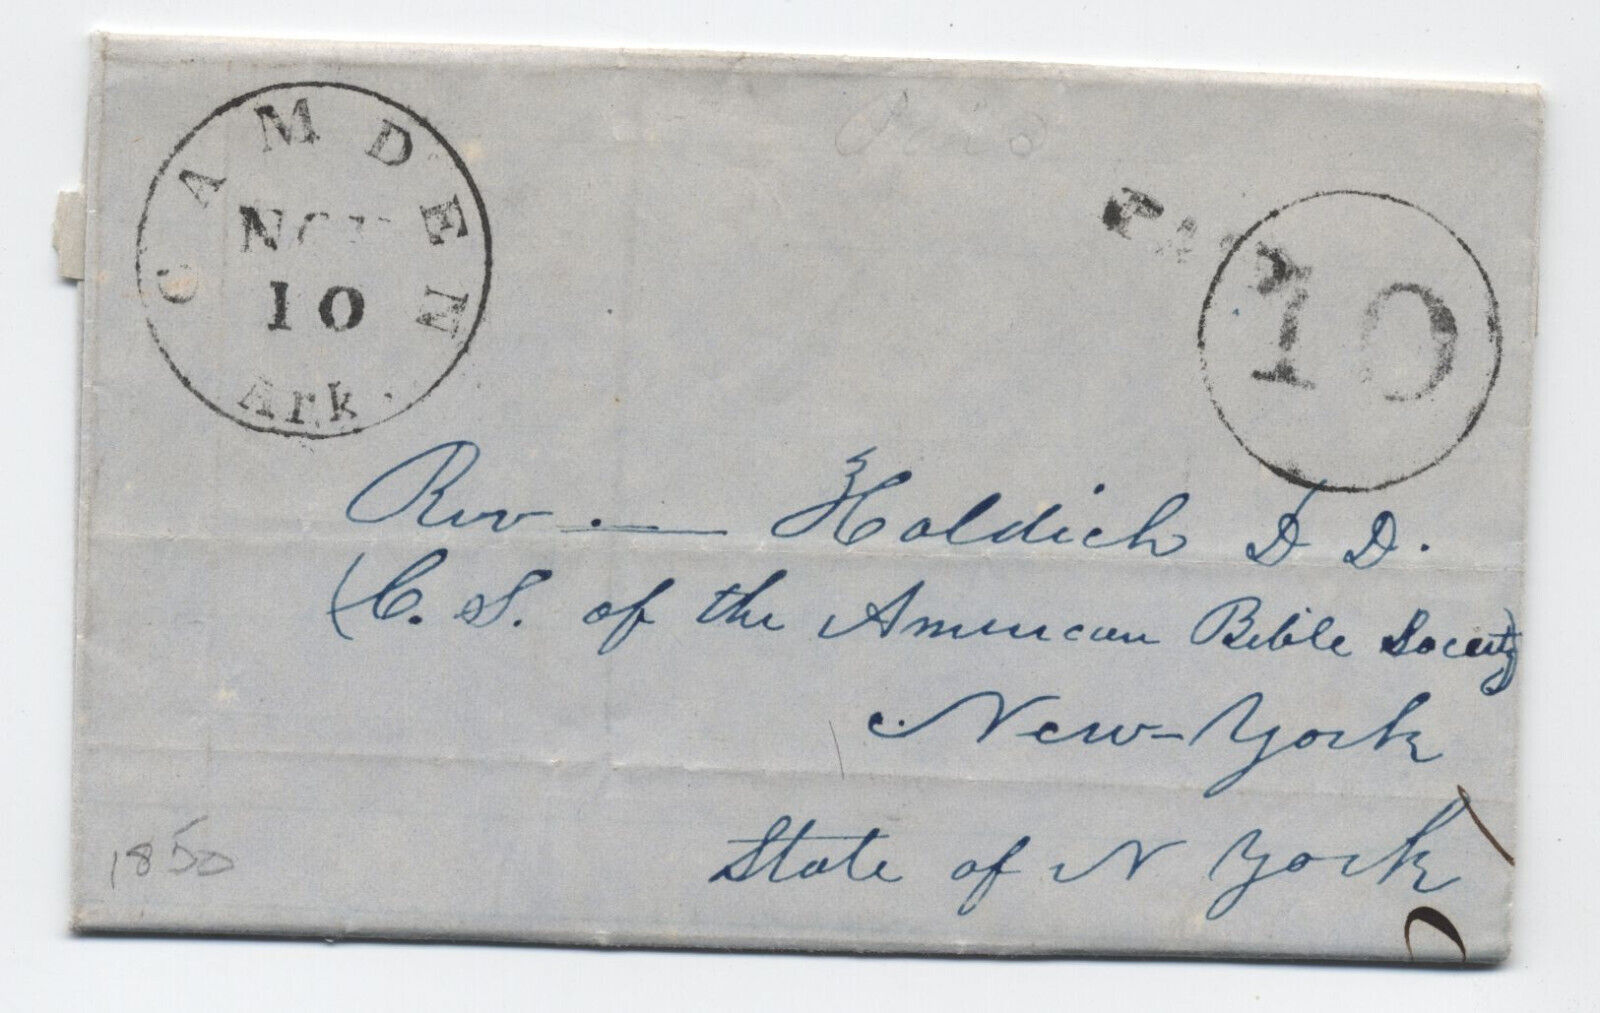 CAMDEN
NOV
10
Ark.
Paid
PAID
10
Rev. — Holdich D D.
(C. S. of the American Bible Society)
New-York
State of N York
1850